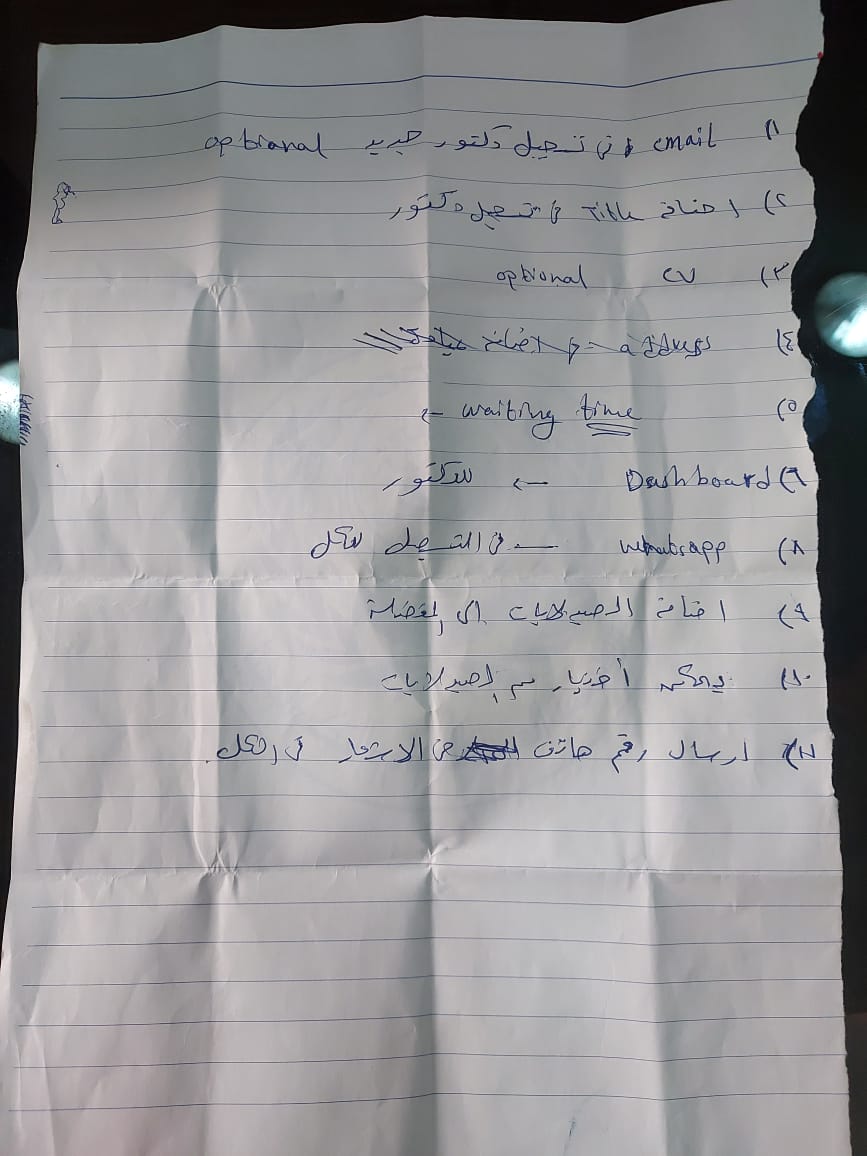 ١) email في تسجيل دكتور جديد optional
٢) اضافة Title في تسجيل دكتور
٣) CV optional
٤) address → اضافة
٥) waiting time ←
٦) Dashboard ← للدكتور
٨) whatsapp — في التسجيل للكل
٩) اضافة الصيدلايات الى المفضلة
١٠) يمكن أختيار من الصيدلايات
١١) ارسال رقم هاتف في الاشعار في الكل